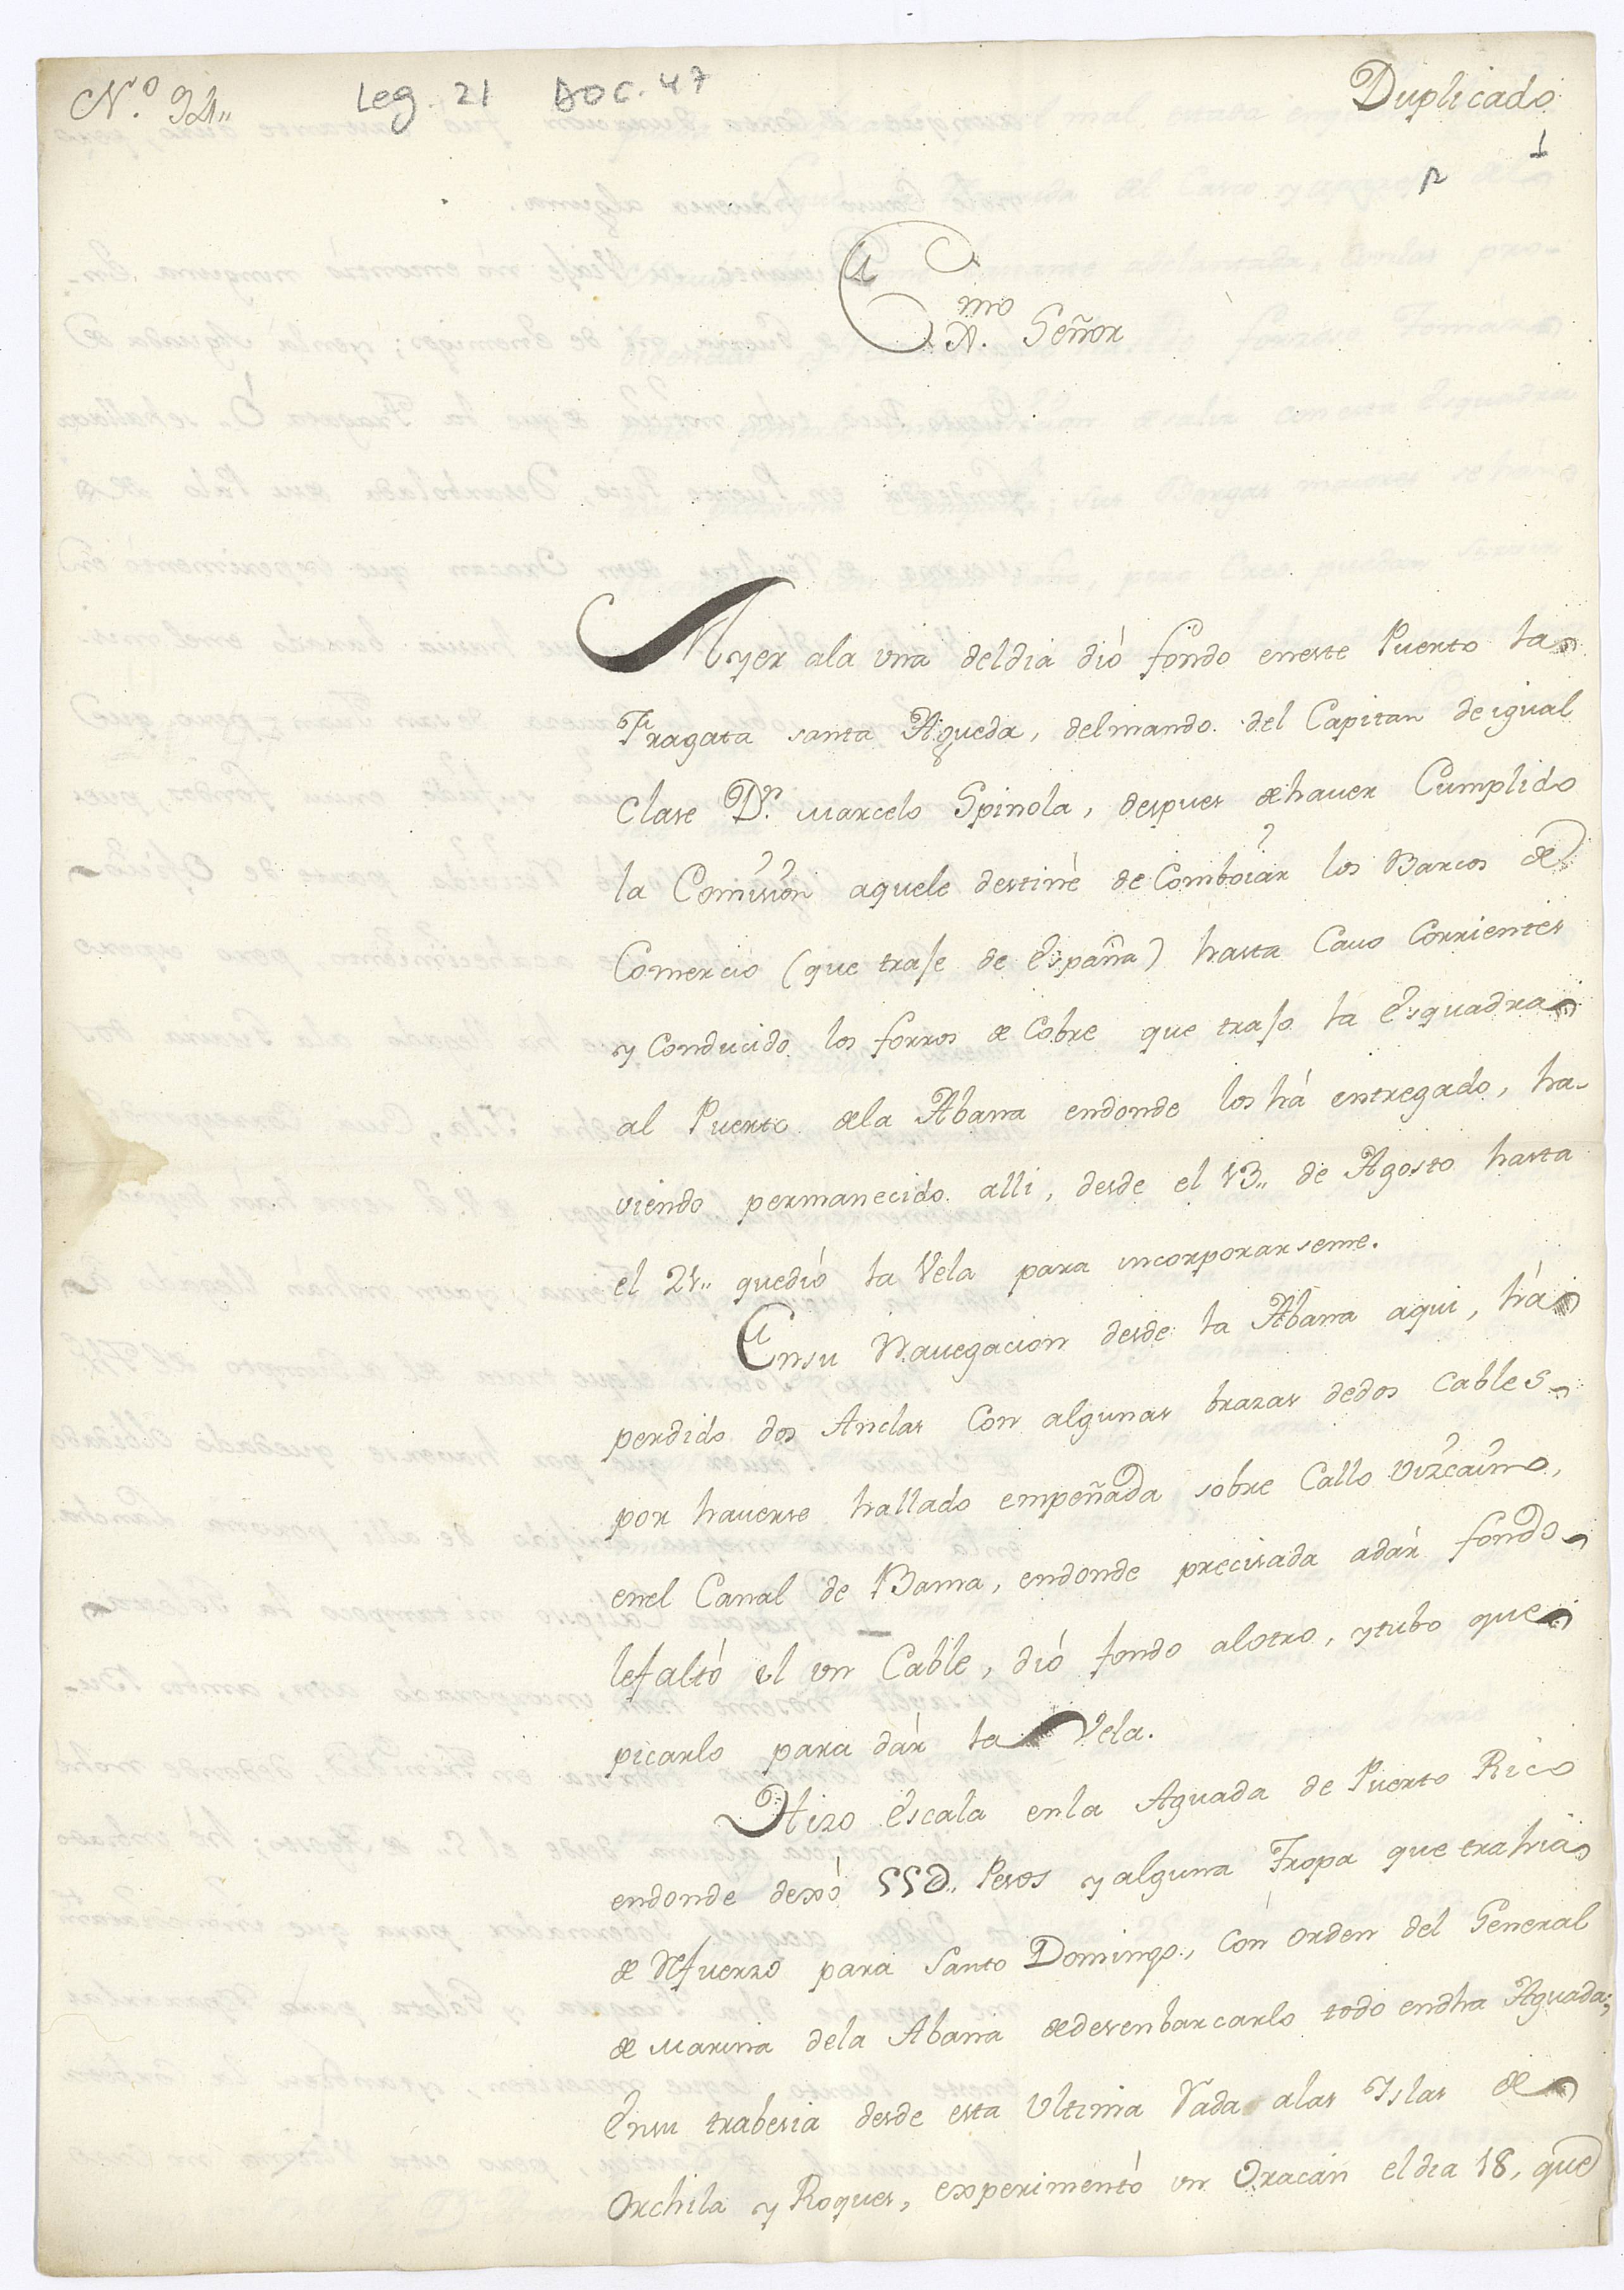 N.º 94,,
Leg. 21 DOC. 47
Duplicado
1
Ex.mo Señor
Ayer ala una deldia dió fondo eneste Puerto la
Fragata santa Agueda, delmando del Capitan de igual
Clase D.n Marcelo Spinola, despues de haver Cumplido
la Comision aquele destinè de Comboiar los Barcos de
Comercio (que traje de España) hasta Cavo Corrientes
y Conducido los forros de Cobre que trajo la Esquadra
al Puerto dela Abana endonde los há entregado, ha-
viendo permanecido alli, desde el 13,, de Agosto hasta
el 21,, quedió la Vela para incorporarseme.
Ensu Navegacion desde la Abana aqui, há
perdido dos Anclas Con algunas brazas dedos Cables
por haverse hallado empeñada sobre Callo Vizcaino,
enel Canal de Bama, endonde precisada adár fondo
lefaltó el un Cable, dió fondo alotro, ytubo que
picarlo para dár la Vela.
Hizo Escala enla Aguada de Puerto Rico
endonde dexó 55@,, Pesos y alguna Tropa que trahia
de Refuerzo para Santo Domingo, con orden del General
de Marina dela Abana de desenbarcarlo todo endha Aguada;
Ensu trabesia desde esta Ultima Rada alas Yslas de
Orchila y Roques, experimentó un Oracán eldia 18, que